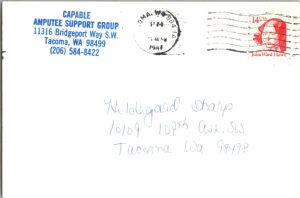 CAPABLE
AMPUTEE SUPPORT GROUP
11316 Bridgeport Way S.W.
Tacoma, WA 98499
(206) 584-8422
PM
1987
14
Hildegard Sharp
10109 108th Ave. SW
Tacoma Wa 98498